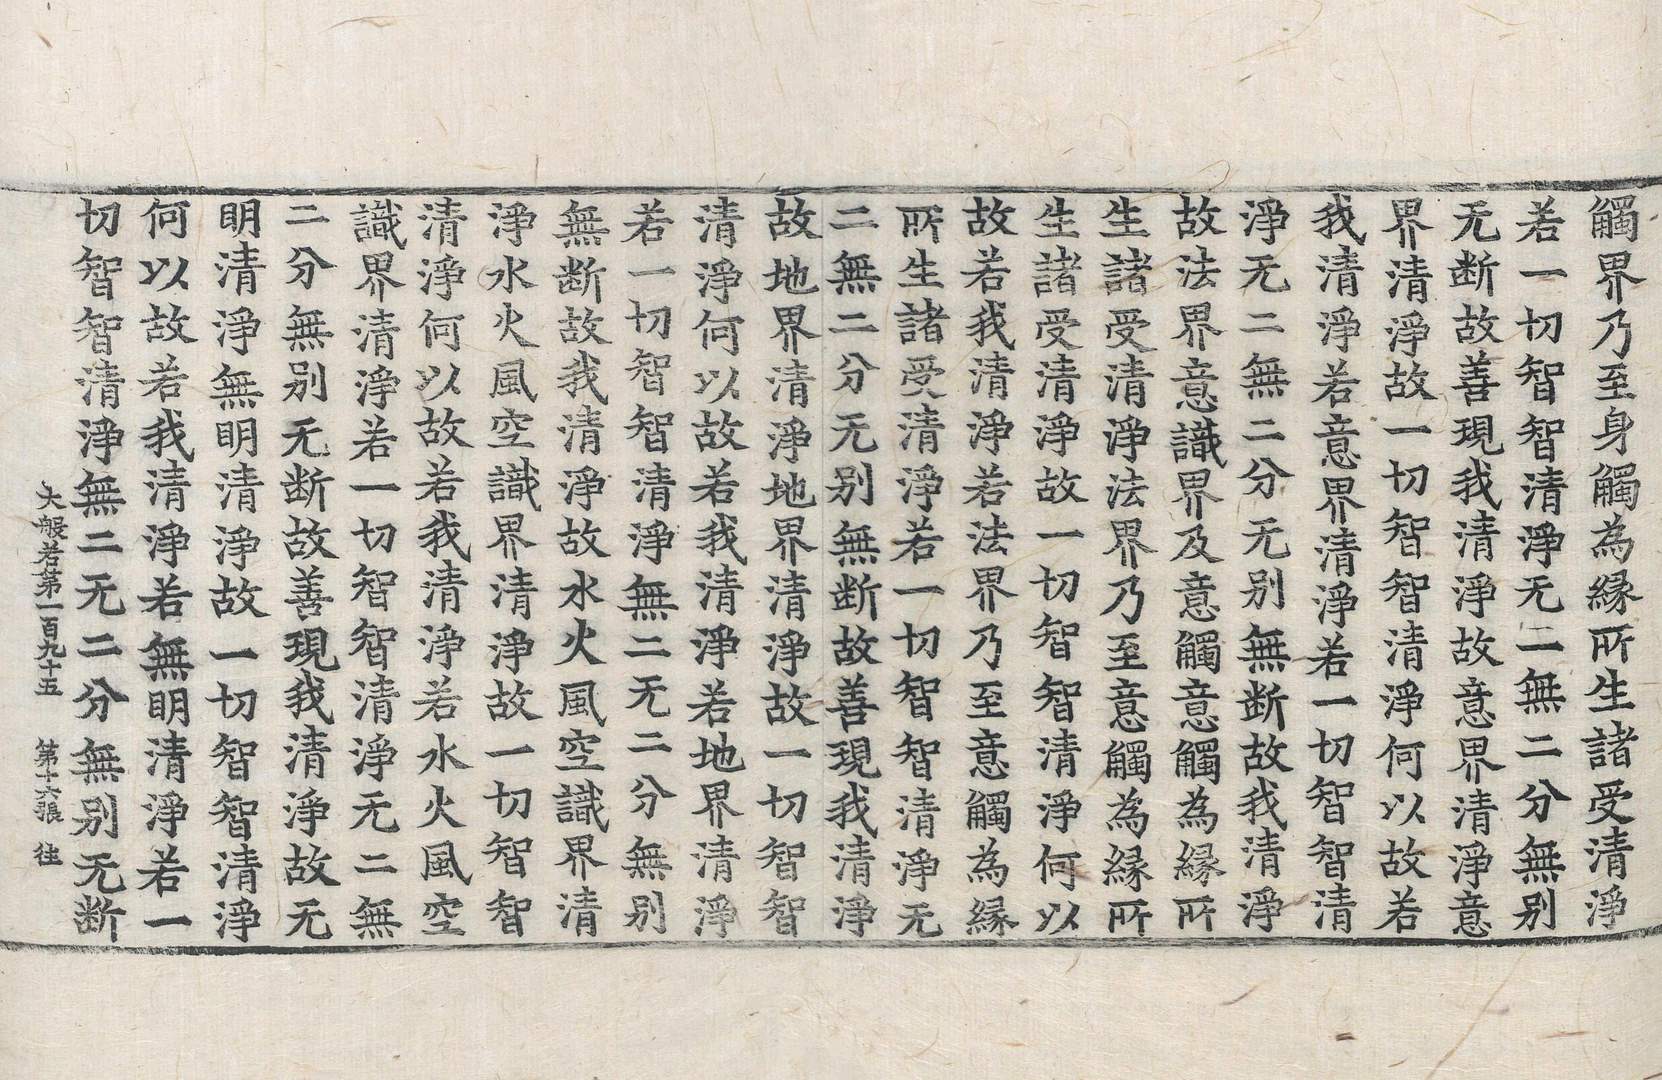 觸界乃至身觸為縁所生諸受清淨
若一切智智清淨无二無二分無別
无断故善現我清淨故意界清淨意
界清淨故一切智智清淨何以故若
我清淨若意界清淨若一切智智清
淨无二無二分无別無断故我清淨
故法界意識界及意觸意觸為縁所
生諸受清淨法界乃至意觸為縁所
生諸受清淨故一切智智清淨何以
故若我清淨若法界乃至意觸為縁
所生諸受清淨若一切智智清淨无
二無二分无別無断故善現我清淨
故地界清淨地界清淨故一切智智
清淨何以故若我清淨若地界清淨
若一切智智清淨無二无二分無別
無断故我清淨故水火風空識界清
淨水火風空識界清淨故一切智智
清淨何以故若我清淨若水火風空
識界清淨若一切智智清淨无二無
二分無別无断故善現我清淨故无
明清淨無明清淨故一切智智清淨
何以故若我清淨若無明清淨若一
切智智清淨無二无二分無別无断
大般若第一百九十五　第十六張　往